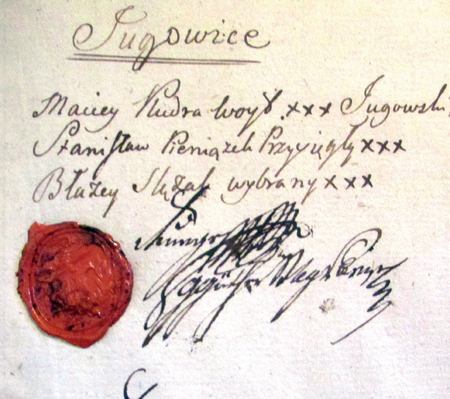 Jugowice
Maciey Kudra woyt. xxx Jugowski
Stanisław Pieniążek Przysięgły xxx
Błażey Slęzak wybrany xxx